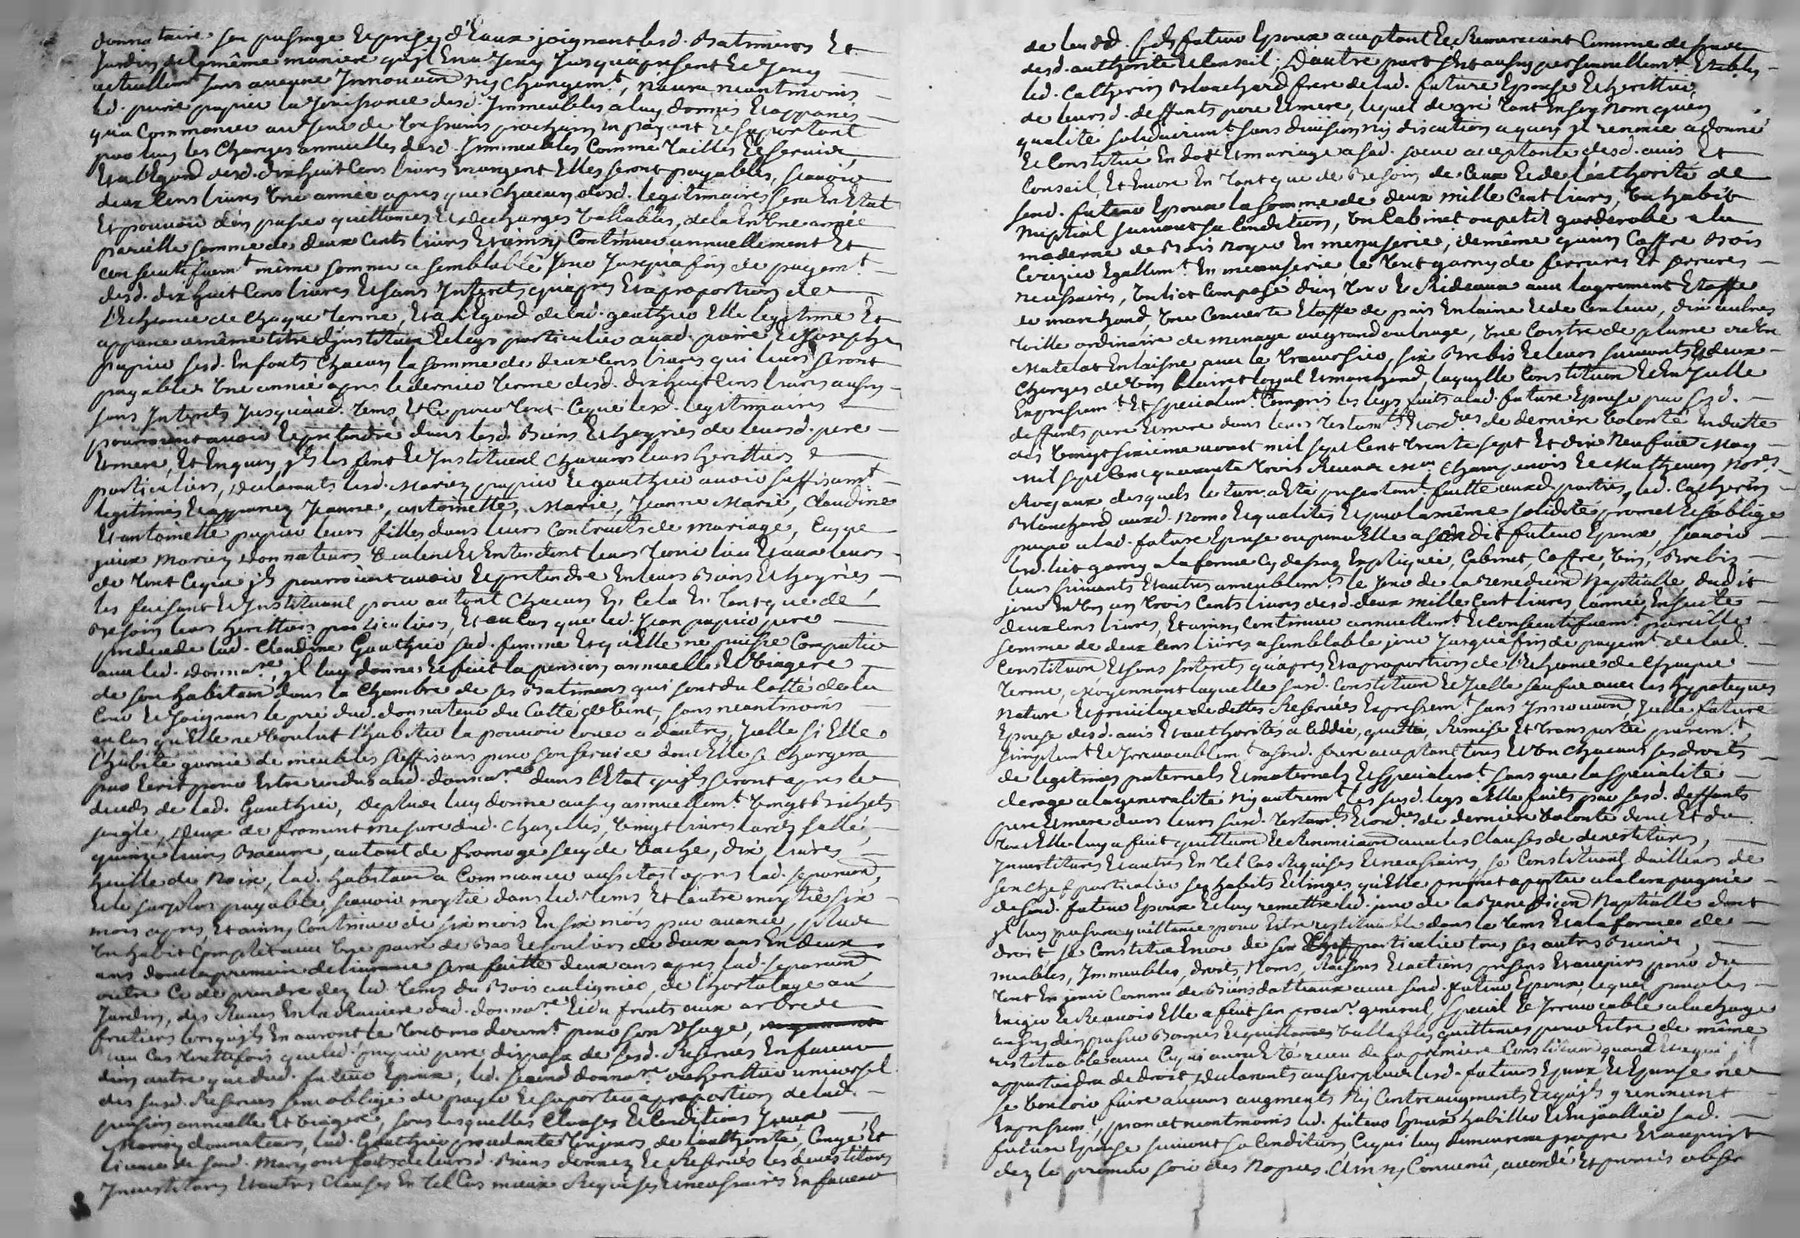 donnataire son passage et prise d'Eaux joignant lesd. Batiments Et
Jardin de la même maniere qu'il En a Jouy Jusqu'a present Et Jouy
actuellem.t sans aucune Innovaon ny changem.t, n'aura neantmoins
led. Marie papier la Jouissance desd. Immeubles a luy donnés Et appanés
qu'a Commancer au Jour de Toussaints prochain En payant Et suportant
par luy les charges annuelles desd. Immeubles Comme Tailles Et servis,
Et a l'Egard desd. dixhuit Cens livres En argent Elles seront payables, sçavoir
deux Cens livres Une année apres que chacun desd. legitimaires sera En Etat
Et pouvoir d'en passer quittances Et decharges Vallables, de la En Une année
pareille somme de deux Cents livres Et ainsy Continuer annuellement Et
consecutifvem.t même somme a semblable Jour Jusqu'a fin de payem.t
desd. dixhuit Cens livres Et sans Interets qu'apres Et a proportion de
l'Echeance de chaque Terme, Et a l'Egard de lad. gauthier Elle legitime Et
appane a même titre d'institution Et legs particulier auxd. pierre Et Joseph
papier sesd. Enfants chacun la somme de deux Cens livres qui leurs seront
payables Une année apres le dernier Terme desd. dixhuit Cens livres aussy
sans Interets Jusqu'aud. Tems, Et Ce pour Tout Ce que lesd. legitimaires
pourroient avoir Et pretendre dans lesd. Biens Et hoyries de leursd. pere
Et mere, Et En quoy ils les font Et Instituent chacuns leurs heritiers
particuliers, declarants lesd. Mariez papier Et gauthier avoir suffisam.t
legitimés Et appanez Jeanne, antoinette, Marie, Jeanne Marie, Claudine
Et antoinette papier leurs filles dans leurs Contracts de mariage, Ce que
yeux Mariez donnateurs Veulent Et Entendent leurs Tenir lieu Et aux leurs
de Tout Ce que ils pourroient avoir Et pretendre En leurs Biens Et hoyries
les faisant Et Instituant pour autant chacun En Cela En Tant que de
Besoin leurs heritiers particuliers, Et au Cas que led. Jean papier pere
predecede lad. Claudine Gauthier sad. femme Et qu'Elle ne puisse Compatir
avec led. donna.re, il luy donne Et fait la pension annuelle Et Viagere
de son habitaon dans la chambre de ses Batimens qui sont du Cotté de la
Cour Et Joignant le pré dud. donnateur du Cotté de Vent, sans neantmoins
au Cas qu'Elle ne Voulut l'habiter la pouvoir louer a d'autres, Icelle si Elle
l'habite garnie de meubles suffisans pour son service dont Elle se chargera
par Ecrit pour Estre rendus aud. donna.re dans l'Etat qu'ils seront apres le
decedz de lad. Gauthier, de plus luy donne aussy annuellem.t Vingt bichets
seigle, deux de froment mesure dud. Chazelles, Vingt livres lard sallé,
quinze livres Beurre, autant de fromage sec de Vache, dix livres
huille de Noix, lad. habitaon a Commancer aussitost apres lad. separaon,
Et le surplus payable sçavoir moytié dans led. Tems Et l'autre moytié six
mois apres Et ainsy Continuer de six mois En six mois par avance, plus
Un habit Complet avec Une paire de Bas Et souliers de deux ans En deux
ans dont la premiere delivrance sera faitte deux ans apres lad. separaon,
outre Ce de prendre dez led. Tems du Bois au ligner, de l'hortolage au
Jardin, des Raves En la Raviere dud. donna.re Et du fruits aux arbres
fruitiers lorsqu'ils En auront le Tout moderem.t pour son Usage,
au Cas Touttefois que led. papier pere dispose de sesd. Reserves En faveur
d'un autre que dud. futur Epoux, led. second donna.re ou heritier universel
des susd. Reserves sera obligé de payer Et suporter a proportion de lad.
pension annuelle Et Viagere, sous lesquelles Clauses Et Conditions Iceux
Mariez donnateurs, lad. Gauthier procedante Toujours de l'authorité, Congé Et
licence de sond. Mary ont fait de leursd. Biens donnez Et Reservés les devestitures
Investitures Et autres clauses En Tel Cas mieux Requises Et necessaires En faveur
de leurd. fils futur Epoux acceptant Et Remerciant Comme de sus
desd. authorité Et Conseil; D'autre part s'est aussy personnellem.t Etably
led. Catherin Blanchard frere de lad. future Epouse Et heritier
de leursd. deffunts pere Et mere, lequel de gré Tant En son Nom qu'en
qualité solidairem.t sans division ny discution a quoy il renonce a donné
Et Constitue En dot Et mariage a sad. soeur acceptante desd. avis Et
Conseil Et Encore En Tant que de Besoin de Ceux Et de l'authorité de
sond. futur Epoux la somme de deux mille Cent livres, Un habit
Nuptial suivant sa Condition, Un Cabinet ou petit garderobe a la
moderne de Bois Noyer En menuserie, de même qu'un Coffre Bois
Cerizier Egallem.t En menuserie, le Tout garny de ferrures Et serrures
necessaires, Un lict Composé d'un Tour de Rideaux avec l'agrement Etoffe
de marchand, Une Couverte Etoffe de païs En laine Et de Couleur, dix aulnes
Toille ordinaire de menage au grand aulnage, Une Coistre de plume ou En
Matelat En laisne avec le Traversier, six Brebis Et leurs suivants Et deux
charges de Vin Clairet loyal Et marchand, laquelle Constitution Est En Icelle
Expressem.t Et specialem.t Compris les legs faits a lad. future Epouse par sesd.
deffunts pere Et mere dans leurs Testam.ts Et ord.res de derniere Volonté En datte
des Vingt sixieme avost mil sept Cent Trente sept Et dix Neufvie May
Mil sept Cent quarante Trois Receus M.es Champenois Et Mathevon Nor.es
Royaux desquels lecture a Eté presentem.t faitte auxd. parties, led. Catherin
Blanchard auxd. Noms Et qualités Et sous la même solidité promet Et s'oblige
payer a lad. future Epouse ou pour Elle a sond. futur Epoux, sçavoir
led. lict garny a la forme Cy dessus Expliquée, Cabinet, Coffre, Vin, Brebis
leurs suivants Et autres ameublem.ts le Jour de la Benediction Nuptialle, dud. it
jour En Un an Trois Cents livres desd. deux mille Cent livres, l'année Ensuite
deux Cens livres, Et ainsy Continuer annuellem.t Et Consecutifvem.t pareille
somme de deux Cens livres a semblable jour Jusqu'a fin de payem.t de lad.
Constituon Et sans Interets qu'apres Et a proportion de l'Echeance de Chaque
Terme, Moyennant laquelle susd. Constituon Et Icelle sauve avec les hypoteques
Nature Et privilege de dotte Reservées Expressem.t sans Innovaon, Icelle future
Epouse desd. avis Et authorités a Cedé, quitté, Remise Et Transportée purem.t,
simplem.t Et Irrevocablem.t a sond. frere acceptant tous Et Un Chacuns ses droits
de legitimes paternels Et maternels Et specialem.t sans que la specialité
deroge a la generalité Ny autrem.t les susd. legs a Elle faits par sesd. deffunts
pere Et mere dans leurs susd. Testam.ts Et ord.res de derniere Volonté dont Et du
Tout Elle luy a fait quittance Et Renonciaon avec les Clauses de devestitures,
Investitures Et autres En Tel Cas Requises Et necessaires, se Constituant d'ailleurs de
son Chef particulier ses habits Et linges qu'Elle promet aporter a la Compagnie
de sond. futur Epoux Et luy remettre led. jour de la Benediction Nuptialle dont
il luy passera quittance pour Estre restituable dans le Tems Et a la forme de
droit, se Constitue Encore de son Chef particulier tous ses autres Biens,
meubles, Immeubles, droits, Noms, Raisons Et actions presens Et avenirs pour du
Tout En jouir Comme de Biens dottaux avec sond. futur Epoux, lequel pour les
Exiger Et Recevoir Elle a fait son procur. general special Et Irrevocable a la charge
d'en passer Bonnes Et Vallables quittances pour Estre de même
restituables avec Ce qui aura Eté receu de la premiere Constituon quand Et a qui il
appartiendra de droit, declarants au surplus lesd. futurs Epoux Et Epouse ne
se Vouloir faire aucuns augments Ny Contre augments Et qu'ils y renoncent
Expressem.t, promet neantmoins led. futur Epoux habiller Et Enjoailler sad.
future Epouse suivant sa Condition Ce qui luy demeurera propre Et acquis
dez le premier soir des Nopces. Ainsy Convenu, accordé Et promis obser